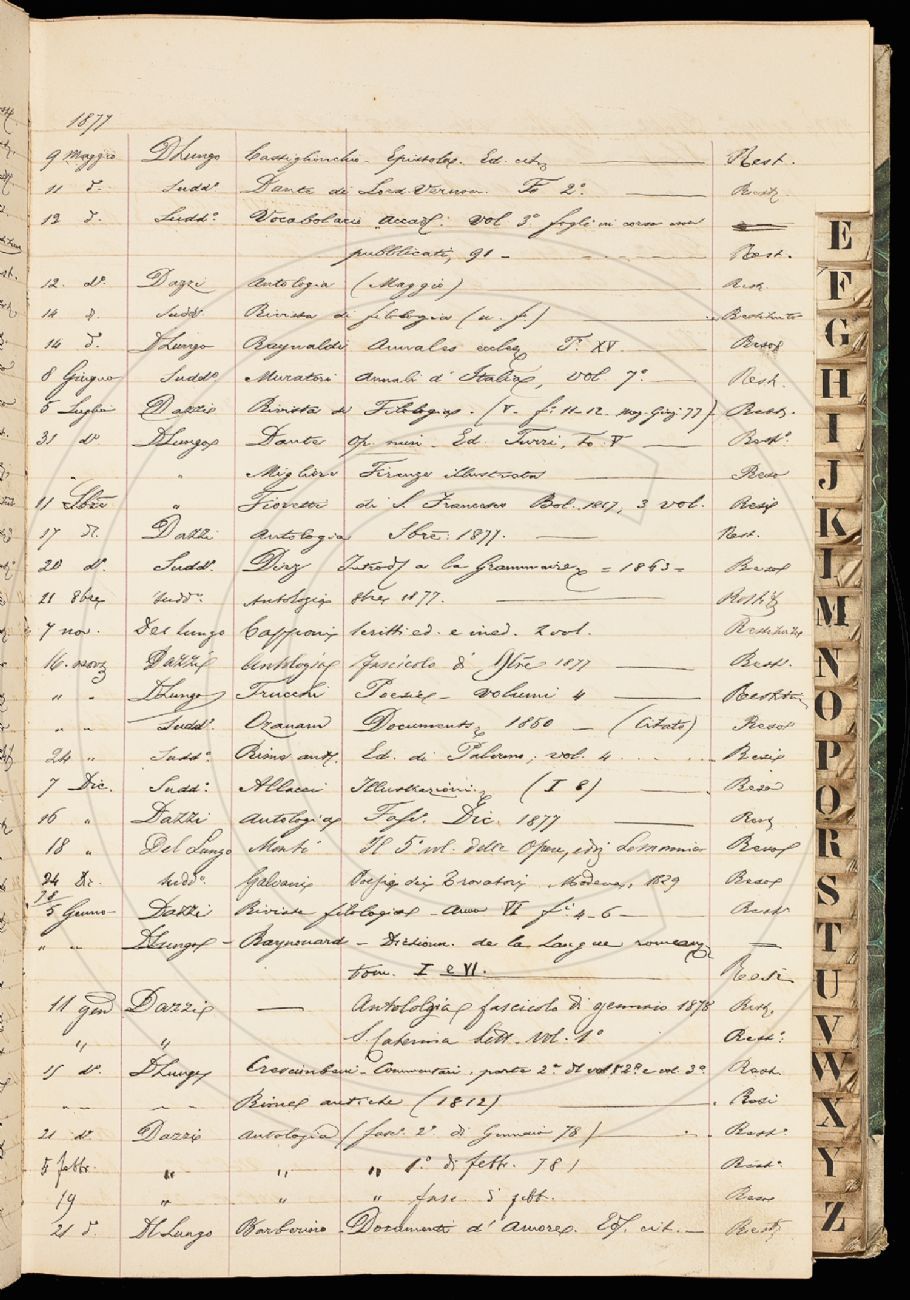 1877
9 Maggio DLungo Castiglionchio - Epistola. Ed. cit. Rest.
11 d. Sudd.º Dante di Lord Vernon. To 2.º Rest.
12 d. Sudd.º Vocabolario Accad. vol 3.º fogli in corso non
pubblicati, 91 - Rest.
12. dº Dazzi Antologia (Maggio) Rest.
14 d. Sudd. Rivista di filologia (a. f.) Restituito
14 d. DLungo Raynaldi Annales eccles. T.º XV Rest.
8 Giugno Sudd.º Muratori Annali d'Italia, vol 7.º Rest.
5 Luglio Dazzi Rivista di Filologia. (V. f.i 11-12 Mag. Giug. 77) Rest.
31 dº DLungo Dante Op. min. Ed. To V Rest.º
" " Migliore Firenze illustrata Rest
11 Sbre " Fioretti di S. Francesco Bol. 1817, 3 vol. Rest
17 d. Dazzi Antologia Sbre. 1877. Rest.
20 dº Sudd.º Diez Introd. a la Grammaire = 1863 = Rest
21 8bre Sudd.º Antologia 8bre 1877.
7 nov. Del Lungo Capponi Scritti ed. e ined. 2 vol.
16. Dazzi Antologia fascicolo di 9bre 1877 Rest.
" " DLungo Trucchi Poesie - volumi 4
" " Sudd.º Ozanam Documents 1850 - (Citato) Rest
24 " Sudd.º Rime ant. Ed. di Palermo, vol. 4 Rest
7 Dic. Sudd.º Allacci Illustrazioni. (I 8) Rest
16 " Dazzi Antologia Fasc. Dic. 1877 Rest
18 " Del Lungo Monti Il 5º vol. delle Opere, ediz Lemonnier Rest
24 Dic. Sudd.º Galvani Poesie dei Trovatori. Modena, 1829 Rest
78
5 Genno Dazzi Rivista filologia - Anno VI f.i 4-6 - Rest
" " DLungo - Raynouard - Dictionn. de la Langue romane
tom. I e VI. Rest
11 gen Dazzi Antologia fascicolo di gennaio 1878 Rest.
" " S. Caterina Lett. vol. 1º Rest.º
15 dº DLungo Crescimbeni - Commentari. parte 2.ª del vol 2º e vol. 3º Rest
" " Rime antiche (1812) Rest
21 dº Dazzi Antologia (fasc. 2.º di Gennaio 78) Rest.
5 febbr. " " " 1.º di febb. 78) Rest.
19 " " " fasc. Rest
21 d Dl Lungo Barberino - Documenti d'Amore. Ed. cit. - Rest
E
F
G
H
I
J
K
L
M
N
O
P
Q
R
S
T
U
V
W
X
Y
Z